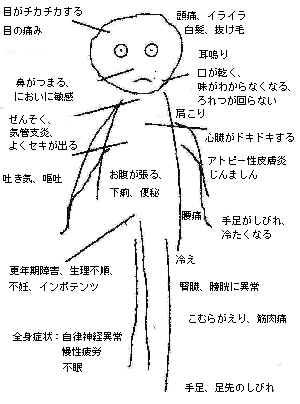 目がチカチカする
目の痛み
頭痛、イライラ
白髪、抜け毛
耳鳴り
鼻がつまる、
においに敏感
口が乾く、
味がわからなくなる、
ろれつが回らない
肩こり
ぜんそく、
気管支炎、
よくセキが出る
心臓がドキドキする
アトピー性皮膚炎
じんましん
吐き気、嘔吐
お腹が張る、
下痢、便秘
腰痛
手足がしびれ、
冷たくなる
冷え
更年期障害、生理不順、
不妊、インポテンツ
腎臓、膀胱に異常
こむらがえり、筋肉痛
全身症状:自律神経異常
慢性疲労
不眠
手足、足先のしびれ